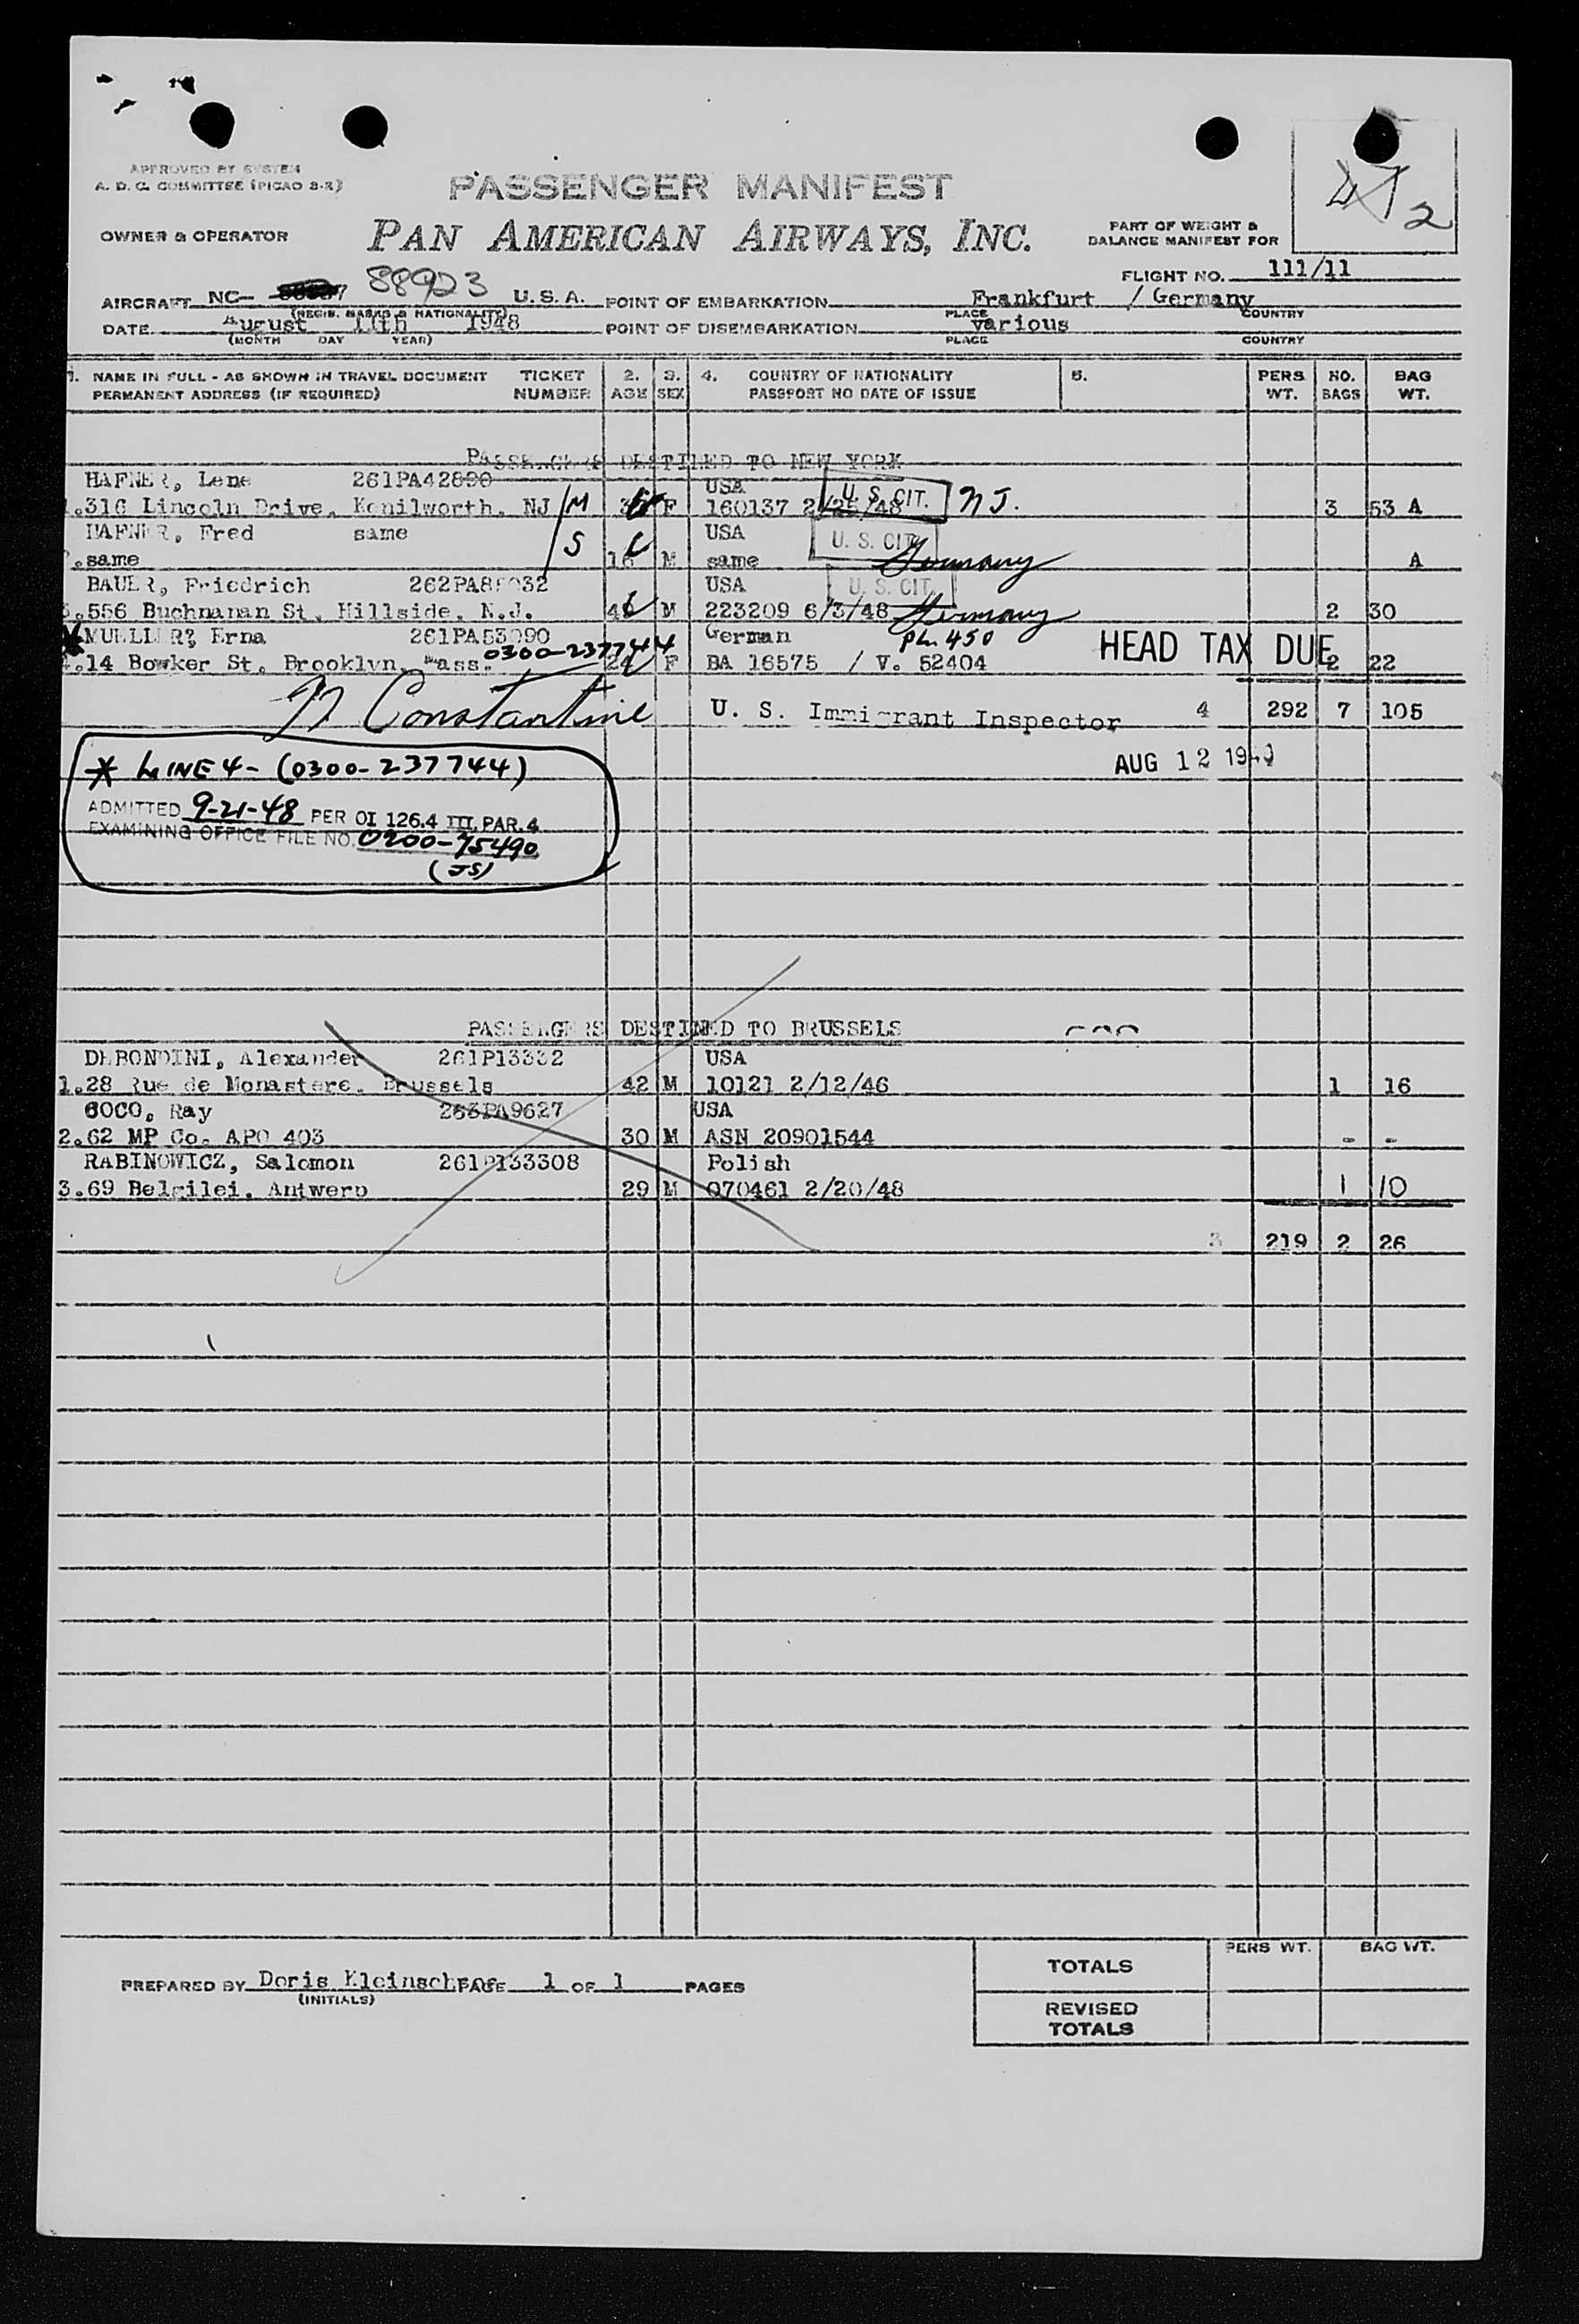 APPROVED BY SYSTEM
A. D. C. COMMITTEE (PICAO 2-R)
PASSENGER MANIFEST
2
OWNER & OPERATOR
PAN AMERICAN AIRWAYS, INC.
PART OF WEIGHT &
BALANCE MANIFEST FOR
FLIGHT NO. 111/11
AIRCRAFT NC- 88923 U. S. A. POINT OF EMBARKATION Frankfurt / Germany
(REGIS. MARKS & NATIONALITY) PLACE COUNTRY
DATE August 11th 1948 POINT OF DISEMBARKATION various
(MONTH DAY YEAR) PLACE COUNTRY
1. NAME IN FULL - AS SHOWN IN TRAVEL DOCUMENT TICKET 2. 3. 4. COUNTRY OF NATIONALITY 5. PERS NO. BAG
PERMANENT ADDRESS (IF REQUIRED) NUMBER AGE SEX PASSPORT NO DATE OF ISSUE WT. BAGS WT.
PASSENGERS DESTINED TO NEW YORK
HAFNER, Lene 261PA42890 USA
1.316 Lincoln Drive, Kenilworth, NJ M F 160137 2/25/48 U. S. CIT. NJ. 3 53 A
HAFNER, Fred same USA U. S. CIT.
.same S 16 M same Germany A
BAUER, Friedrich 262PA88032 USA U. S. CIT.
3.556 Buchnanan St. Hillside, N.J. M 223209 6/3/48 Germany 2 30
* MUELLER, Erna 261PA53090 German PL. 450
0300-237744 HEAD TAX DUE
4.14 Bowker St. Brooklyn, Mass. F BA 16575 / V. 52404 2 22
N Constantine U. S. Immigrant Inspector 4 292 7 105
AUG 12 19
* LINE 4- (0300-237744)
ADMITTED 9-21-48 PER OI 126.4 III PAR. 4
EXAMINING OFFICE FILE NO. 0200-75490
(JS)
PASSENGERS DESTINED TO BRUSSELS
DEBONDINI, Alexander 261P13332 USA
1.28 Rue de Monastere, Brussels 42 M 10121 2/12/46 1 16
COCO, Ray 263PA9627 USA
2.62 MP Co. APO 403 30 M ASN 20901544 - -
RABINOWICZ, Salomon 261P133308 Polish
3.69 Belgilei, Antwerp 29 M 070461 2/20/48 1 10
3 219 2 26
PERS WT. BAG WT.
TOTALS
PREPARED BY Doris PAGE 1 OF 1 PAGES
(INITIALS)
REVISED
TOTALS